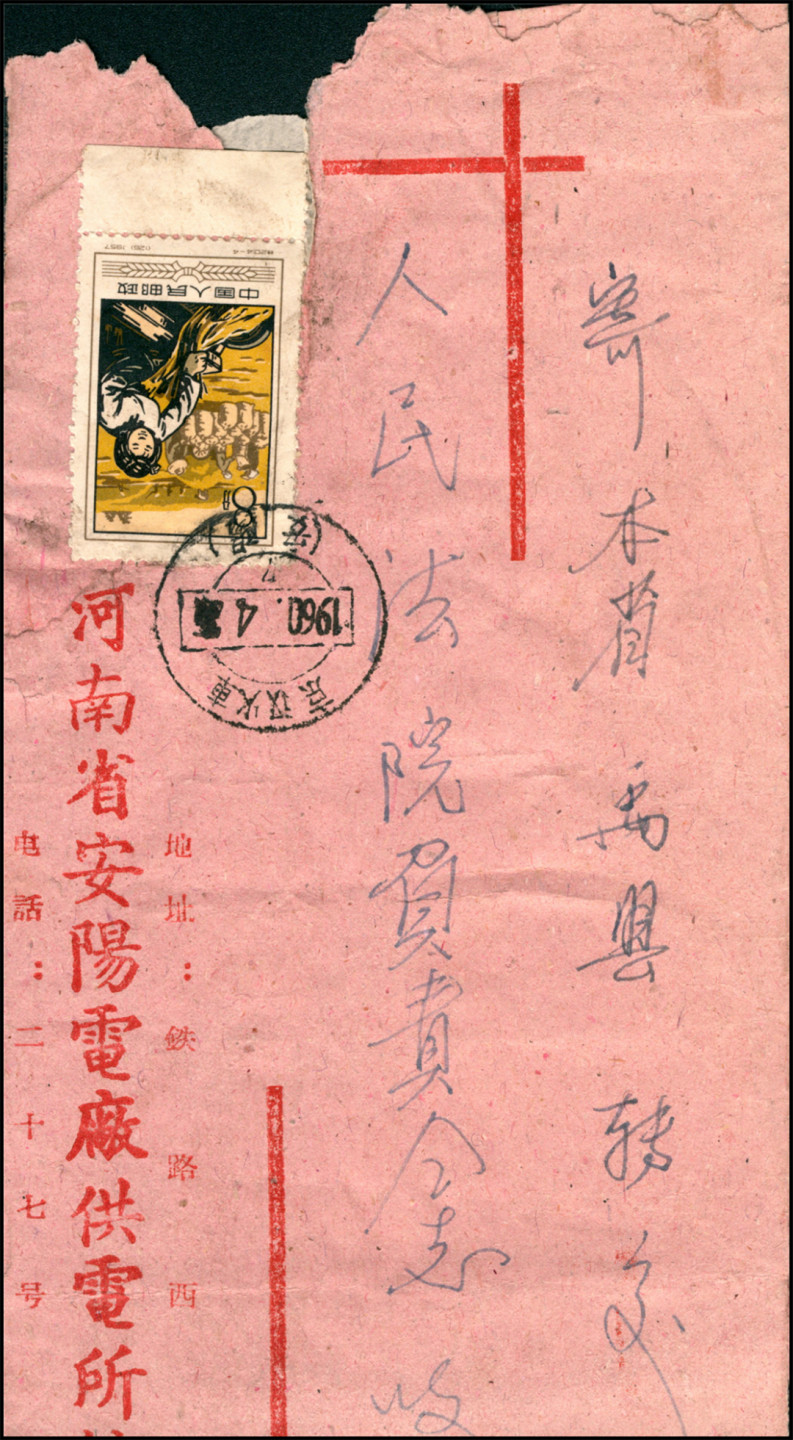 寄本省禹县转交
人民法院負責仝志收
中国人民邮政
8分
1957
1960.4
地址：鉄路西
河南省安陽電廠供電所
电話：二十七号